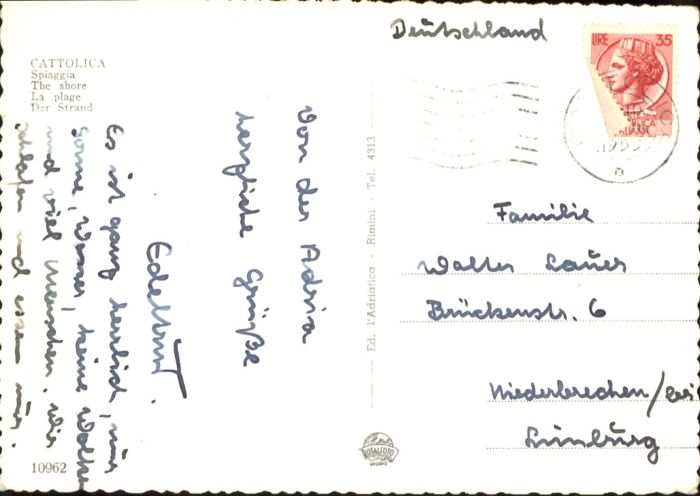 CATTOLICA
Spiaggia
The shore
La plage
Der Strand
Von der Adria
herzliche Grüße
Edeltrut.
Es ist ganz herrlich, nur
Sonne, Wasser, keine Wolke
und viel Menschen. Wir
schlafen und essen nur.
10962
Ed. l'Adriatica - Rimini - Tel. 4313
ROTALFOTO
MILANO
Deutschland
LIRE 35
1955
Familie
Walter Lauer
Brückenstr. 6
Niederbrechen / bei
Limburg